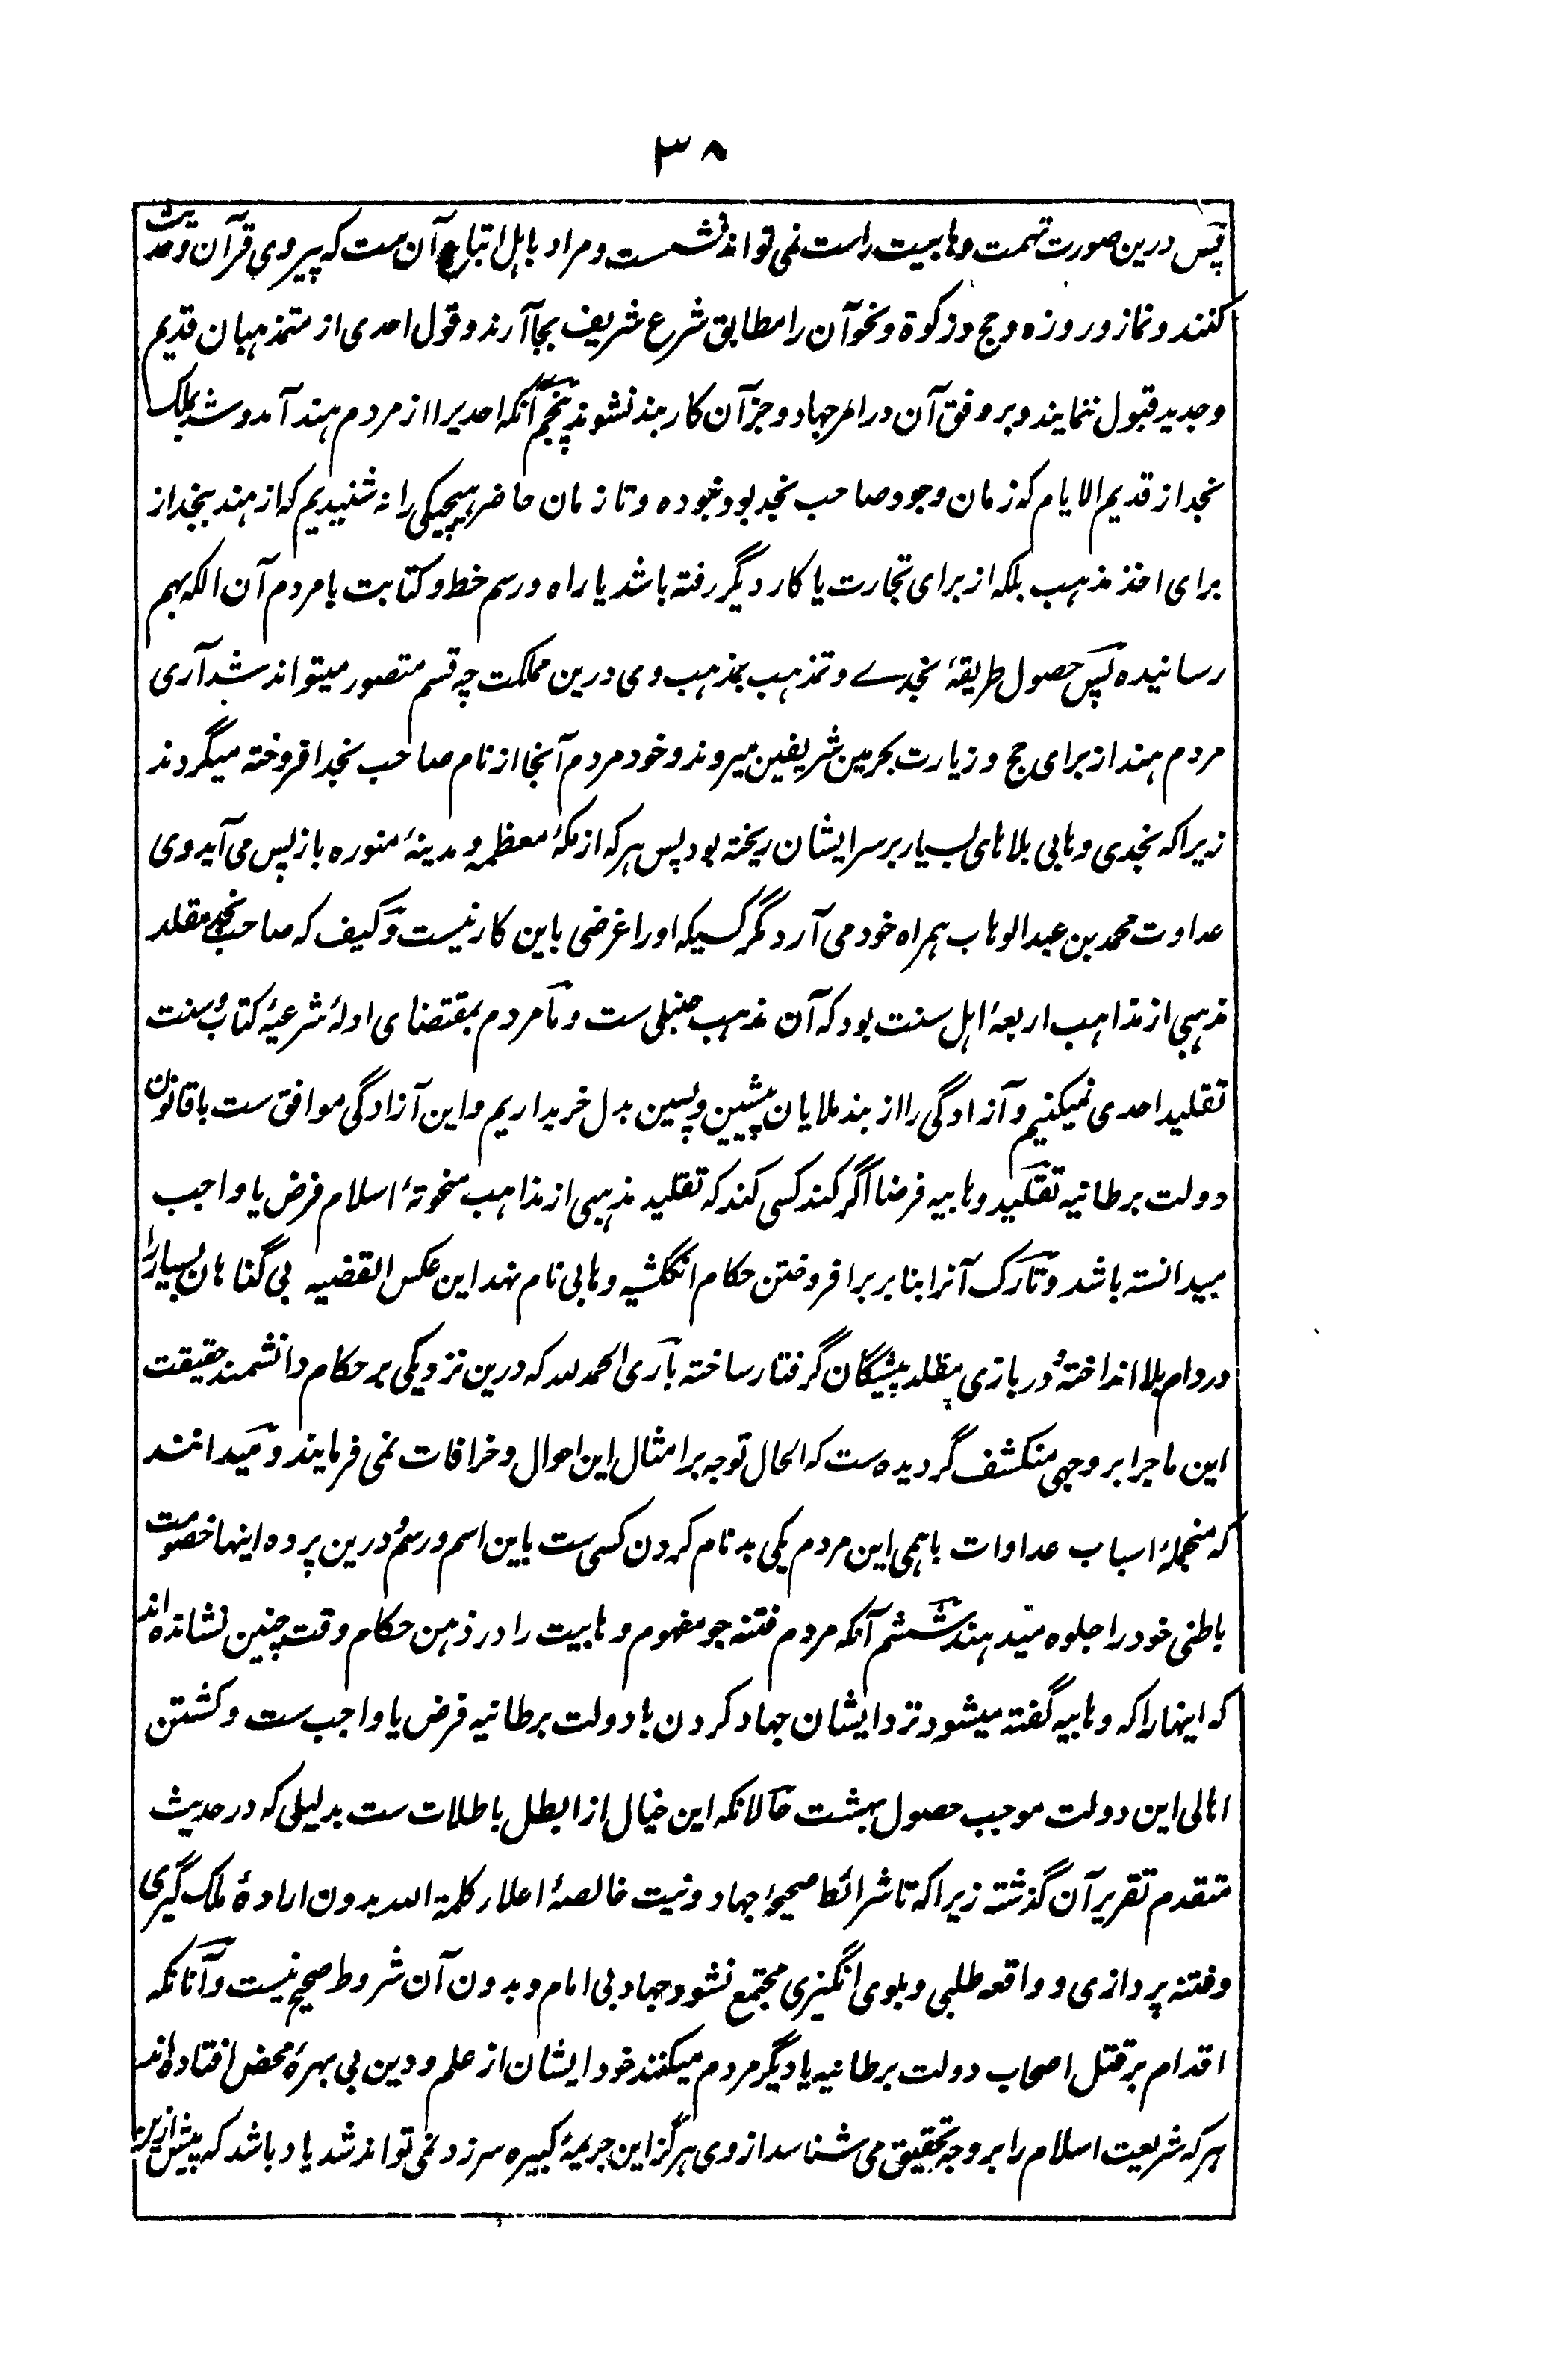 ۳۸
پس درین صورت تهمت وهابیت راست نمی تواند نشست و مراد باهل اتباع آن ست که پیروی قرآن و حدیث
کنند و نماز و روزه و حج و زکوة و نحو آن را مطابق شرع شریف بجا آرند و قول احدی از متمذهبان قدیم
و جدید قبول ننمایند و بر وفق آن در امر جهاد و جز آن کاربند نشوند پنجم آنکه احدیرا از مردم هند آمد و شد بملک
نجد از قدیم الایام که زمان وجود صاحب نجد بود نبوده و تا زمان حاضر هیچیکی را نه شنیدیم که از هند بنجد از
برای اخذ مذهب بلکه از برای تجارت یا کار دیگر رفته باشد یا راه و رسم خط و کتابت با مردم آن الکه بهم
رسانیده پس حصول طریقۀ نجدے و تمذهب بمذهب وی درین مملکت چه قسم متصور میتواند شد آری
مردم هند از برای حج و زیارت بحرمین شریفین میروند و خود مردم آنجا از نام صاحب نجد افروخته میگردند
زیرا که نجدی وهابی بلاهای بسیار بر سر ایشان ریخته بود پس هر که از مکۀ معظمه و مدینۀ منوره باز پس می آید وی
عداوت محمد بن عبدالوهاب همراه خود می آرد مگر کسیکه او را غرضی باین کار نیست و کیف که صاحب نجد مقلد
مذهبی از مذاهب اربعۀ اهل سنت بود که آن مذهب حنبلی ست و ما مردم بمقتضای ادلۀ شرعیۀ کتاب و سنت
تقلید احدی نمیکنیم و آزادگی را از بند ملایان پیشین و پسین بدل خریداریم و این آزادگی موافق ست با قانون
دولت برطانیه تقلید وهابیه فرضا اگر کند کسی کند که تقلید مذهبی از مذاهب منحوتۀ اسلام فرض یا واجب
میدانسته باشد و تارک آنرا بنا بر برافروختن حکام انگلشیه وهابی نام نهد این عکس القضیه بی گناهان بسیار را
در دام بلا انداخته و در بازی مقلد پیشگان گرفتار ساخته آری الحمد لله که درین نزدیکی بر حکام دانشمند حقیقت
این ماجرا بر وجهی منکشف گردیده ست که الحال توجه بر امثال این احوال و خرافات نمی فرمایند و میدانند
که منجملۀ اسباب عداوات باهمی این مردم یکی بدنام کردن کسی ست باین اسم و رسم و درین پرده اینها خصومت
باطنی خود را جلوه میدهند ششم آنکه مردم فتنه جو مفهوم وهابیت را در ذهن حکام وقت چنین نشانده اند
که اینها را که وهابیه گفته میشود نزد ایشان جهاد کردن با دولت برطانیه فرض یا واجب ست و کشتن
اهالی این دولت موجب حصول بهشت حالانکه این خیال از ابطل باطلات ست بدلیلی که در حدیث
متقدم تقریر آن گذشته زیرا که تا شرائط صحیحۀ جهاد و نیت خالصۀ اعلاء کلمة الله بدون ارادۀ ملک گیری
و فتنه پردازی و واقعه طلبی و بلوی انگیزی مجتمع نشود جهاد بی امام و بدون آن شروط صحیح نیست و آنانکه
اقدام بر قتل اصحاب دولت برطانیه یا دیگر مردم میکنند خود ایشان از علم و دین بی بهرۀ محض افتاده اند
هر که شریعت اسلام را بر وجه تحقیق می شناسد از وی هرگز این جریمۀ کبیره سرزد نمی تواند شد یاد باشد که پیش ازین